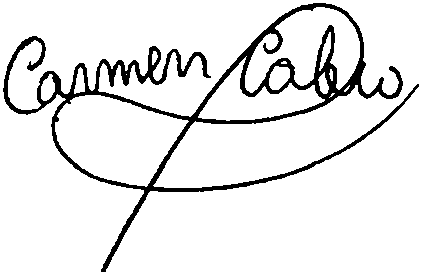 Carmen Calvo